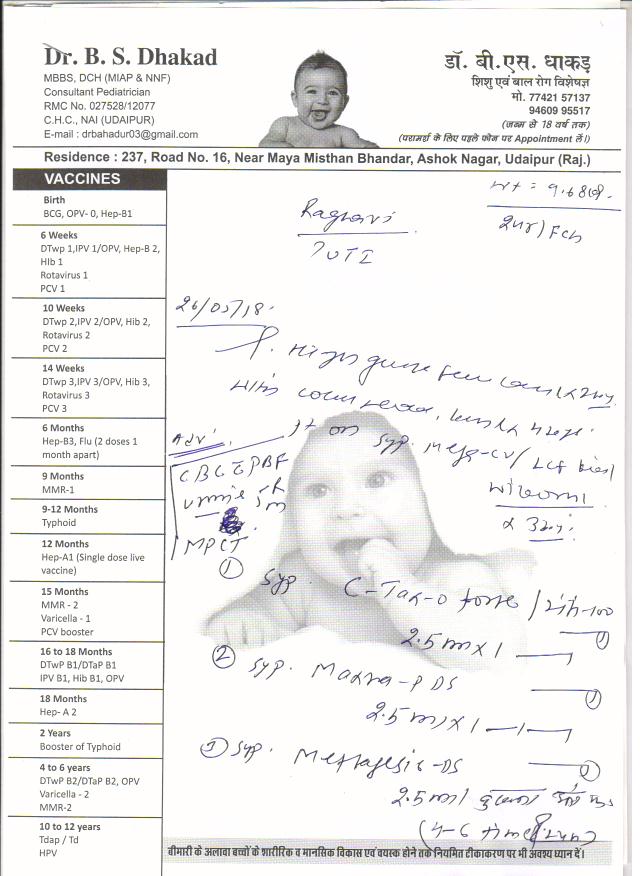 Dr. B. S. Dhakad
MBBS, DCH (MIAP & NNF)
Consultant Pediatrician
RMC No. 027528/12077
C.H.C., NAI (UDAIPUR)
E-mail : drbahadur03@gmail.com
डॉ. बी.एस. धाकड़
शिशु एवं बाल रोग विशेषज्ञ
मो. 77421 57137
94609 95517
(जन्म से 18 वर्ष तक)
(परामर्श के लिए पहले फोन पर Appointment लें।)
Residence : 237, Road No. 16, Near Maya Misthan Bhandar, Ashok Nagar, Udaipur (Raj.)
VACCINES
Birth
BCG, OPV- 0, Hep-B1
6 Weeks
DTwp 1,IPV 1/OPV, Hep-B 2,
HIb 1
Rotavirus 1
PCV 1
10 Weeks
DTwp 2,IPV 2/OPV, Hib 2,
Rotavirus 2
PCV 2
14 Weeks
DTwp 3,IPV 3/OPV, Hib 3,
Rotavirus 3
PCV 3
6 Months
Hep-B3, Flu (2 doses 1
month apart)
9 Months
MMR-1
9-12 Months
Typhoid
12 Months
Hep-A1 (Single dose live
vaccine)
15 Months
MMR - 2
Varicella - 1
PCV booster
16 to 18 Months
DTwP B1/DTaP B1
IPV B1, Hib B1, OPV
18 Months
Hep- A 2
2 Years
Booster of Typhoid
4 to 6 years
DTwP B2/DTaP B2, OPV
Varicella - 2
MMR-2
10 to 12 years
Tdap / Td
HPV
wt = 9.68
2yr/Fch
Raghavi
? UTI
26/05/18
high grade fever
with
It on syp.
Adv.
CBC PBF
Urine
MPCT
① Syp. C-Tax-O forte
2.5 ml x 1
② Syp. P DS ①
2.5 ml x 1
Syp. Meftagesic-DS
2.5 ml
(4-6
बीमारी के अलावा बच्चों के शारीरिक व मानसिक विकास एवं वयस्क होने तक नियमित टीकाकरण पर भी अवश्य ध्यान दें।